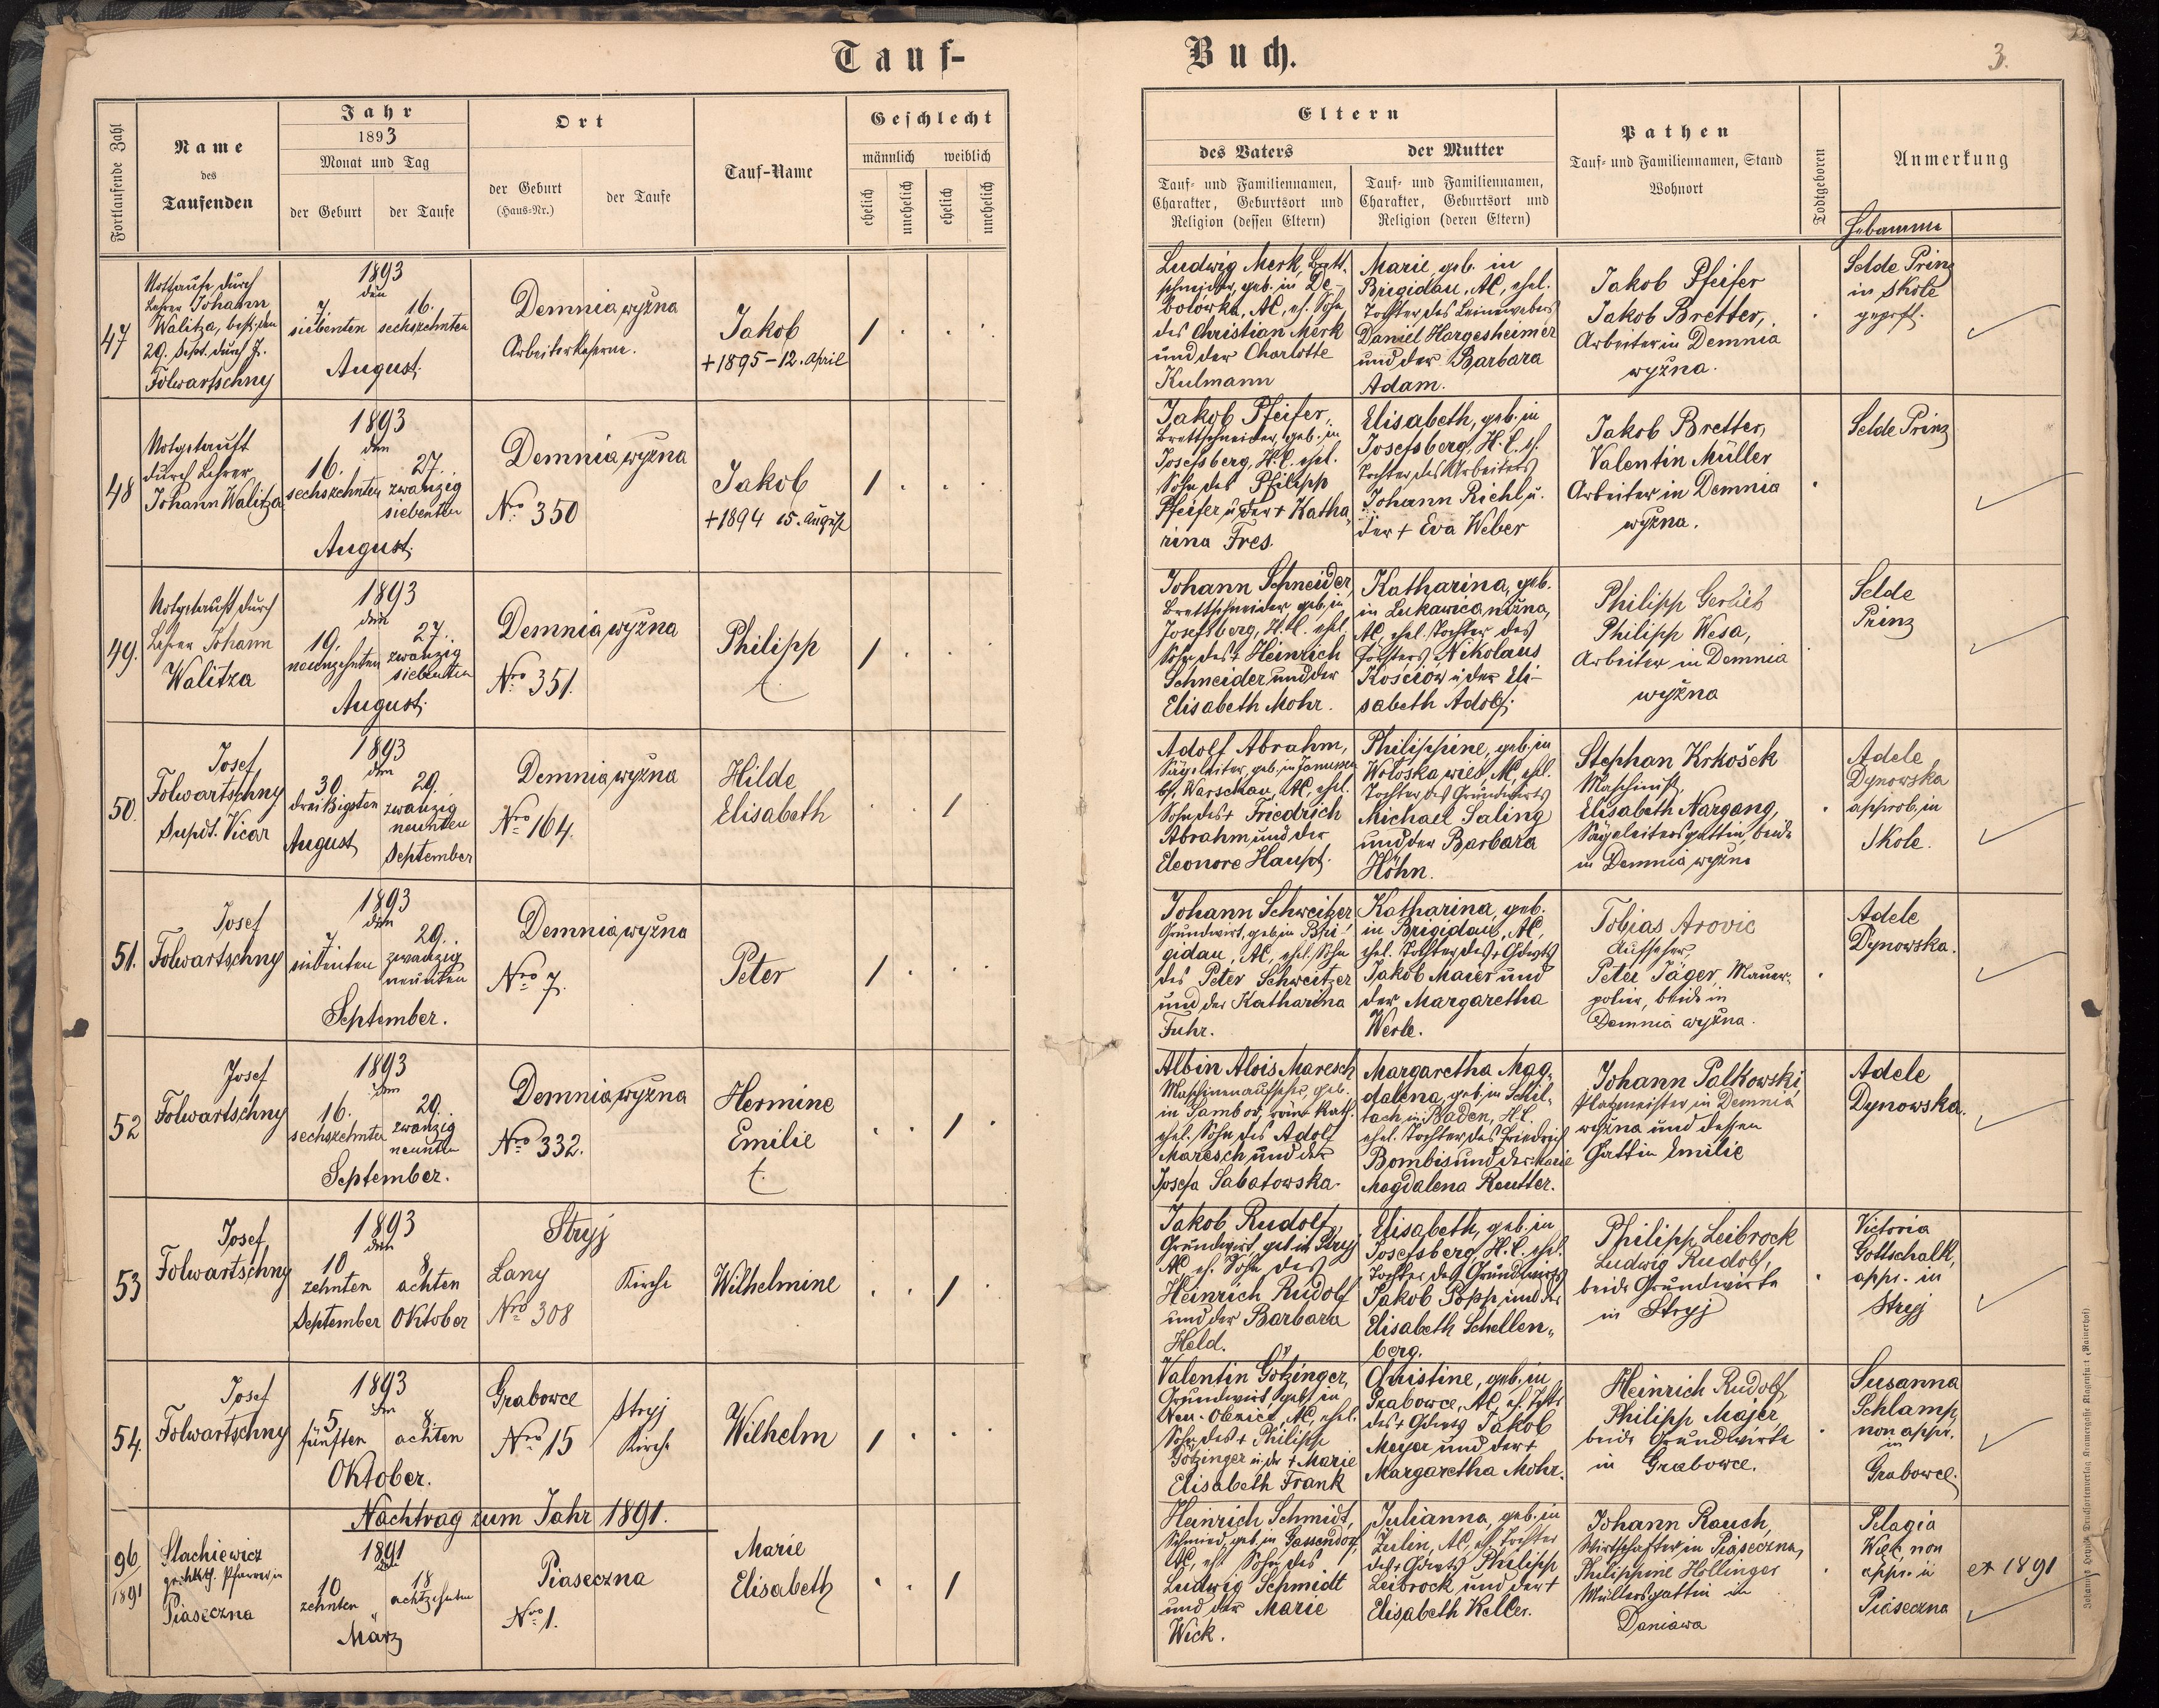 Tauf-
Buch.
3.
Fortlaufende Zahl
Name
des
Taufenden
Jahr
1893
Monat und Tag
der Geburt
der Taufe
Ort
der Geburt
(Haus-Nr.)
der Taufe
Tauf-Name
Geschlecht
männlich
weiblich
ehelich
unehelich
ehelich
unehelich
Eltern
des Vaters
Tauf- und Familiennamen,
Charakter, Geburtsort und
Religion (dessen Eltern)
der Mutter
Tauf- und Familiennamen,
Charakter, Geburtsort und
Religion (deren Eltern)
Pathen
Tauf- und Familiennamen, Stand
Wohnort
Todtgeboren
Anmerkung
Hebamme
47
Nottaufe durch
Lehrer Johann
Walitza, best. den
29. Sept. durch J.
Folwartschny
1893
den
7. 16.
siebenten sechszehnten
August.
Demnia wyżna
Arbeiterkaserne.
Jakob
+1895-12. April
Ludwig Merk, Brett-
schneider, geb. in De-
bolówka, AC, eh. Sohn
des Christian Merk
und der Charlotte
Kulmann
Marie, geb. in
Brigidau, AC, ehel.
Tochter des Leinewebers
Daniel Hargesheimer
und der Barbara
Adam.
Jakob Pfeifer
Jakob Bretter,
Arbeiter in Demnia
wyżna.
Selde Prinz
in Skole
geprft.
48
Notgetauft
durch Lehrer
Johann Walitza
1893
den
16. 27.
sechszehnten zwanzig
siebenten
August.
Demnia wyżna
Nro 350
Jakob
+1894 15. August
Jakob Pfeifer,
Brettschneider, geb. in
Josefsberg, H.C. ehel.
Sohn des Philipp
Pfeifer u. der + Katha-
rina Fres.
Elisabeth, geb. in
Josefsberg, H.C. eh.
Tochter des Arbeiters
Johann Richl u.
der + Eva Weber
Jakob Bretter,
Valentin Müller
Arbeiter in Demnia
wyżna.
Selde Prinz
49.
Notgetauft durch
Lehrer Johann
Walitza
1893
den
19. 27.
neunzehnten zwanzig
siebenten
August.
Demnia wyżna
Nro 351.
Philipp
†.
Johann Schneider,
Brettschneider, geb. in
Josefsberg, H.C. ehel.
Sohn des + Heinrich
Schneider und der
Elisabeth Mohr.
Katharina, geb.
in Lukawica niżna,
AC, ehel. Tochter des
Försters Nikolaus
Kościów u. der Eli-
sabeth Adolf.
Philipp Gerlieb
Philipp Wesa,
Arbeiter in Demnia
wyżna
Selde
Prinz
50.
Josef
Folwartschny
Supdt. Vicar
1893
den
30. 29.
dreißigsten zwanzig
neunten
August September
Demnia wyżna
Nro 164.
Hilde
Elisabeth
Adolf Abrahm,
Sägeleiter, geb. in
bei Warschau, AC, ehel.
Sohn des + Friedrich
Abrahm und der
Eleonore Haupt.
Philippine, geb. in
Wołoska wieś, AC, ehel.
Tochter des Grundwirts
Michael Saling
und der Barbara
Höhn.
Stephan Krkošek
Maschinist,
Elisabeth Nargang,
Sägeleitersgattin, beide
in Demnia wyżna
Adele
Dynowska
approb. in
Skole.
51.
Josef
Folwartschny
1893
den
7. 29.
siebenten zwanzig
neunten
September.
Demnia wyżna
Nro 7.
Peter
Johann Schweitzer
Grundwirt, geb. in Bri-
gidau, AC, ehel. Sohn
des Peter Schweitzer
und der Katharina
Fuhr.
Katharina, geb.
in Brigidau, AC,
ehel. Tochter des + Gdwts
Jakob Maier und
der Margaretha
Werle.
Tobias Arovic
Aufseher,
Peter Jäger, Mauer-
polier, beide in
Demnia wyżna.
Adele
Dynowska.
52
Josef
Folwartschny
1893
den
16. 29.
sechszehnten zwanzig
neunten
September.
Demnia wyżna
Nro 332.
Hermine
Emilie
†.
Albin Alois Maresch
Maschinenaufseher, geb.
in Sambor, röm. kath.
ehel. Sohn des Adolf
Maresch und der
Josefa Sabatowska.
Margaretha Mag-
dalena, geb. in Schil-
tach in Baden, H.C.
ehel. Tochter des Friedrich
Bombis und der Marie
Magdalena Reutter.
Johann Palkowski,
Platzmeister in Demnia
wyżna und dessen
Gattin Emilie
Adele
Dynowska.
53
Josef
Folwartschny
1893
den
10 8
zehnten achten
September Oktober
Stryj
Lany
Nro 308
Kirche
Wilhelmine
Jakob Rudolf,
Grundwirt, geb. in Stryj
AC eh. Sohn des
Heinrich Rudolf
und der Barbara
Held.
Elisabeth, geb. in
Josefsberg, H.C. ehel.
Tochter des Grundwirts
Jakob Popp und der
Elisabeth Schellen-
berg.
Philipp Leibrock
Ludwig Rudolf,
beide Grundwirte
in Stryj
Victoria
Gottschalk,
appr. in
Stryj
54.
Josef
Folwartschny
1893
den
5 8.
fünften achten
Oktober.
Grabowce
Nro 15
Stryj
Kirche
Wilhelm
Valentin Götzinger,
Grundwirt, geb. in
Neu-Oleznica, AC, ehel.
Sohn des + Philipp
Götzinger u. der + Marie
Elisabeth Frank
Christine, geb. in
Grabowce, AC, eh. Tchtr
des + Gdwts Jakob
Meyer und der +
Margaretha Mohr.
Heinrich Rudolf,
Philipp Majer,
beide Grundwirte
in Grabowce.
Susanna
Schlamp,
non appr.
in
Grabowce.
Nachtrag zum Jahr 1891.
96
1891
Stachiewicz
Pfarrer in
Piaseczna
1891
den
10 18
zehnten achtzehnten
März
Piaseczna
Nro 1.
Marie
Elisabeth
Heinrich Schmidt,
Schmied, geb. in Gassendorf,
AC, ehel. Sohn des
Ludwig Schmidt
und der Marie
Wick.
Julianna, geb. in
Zulin, AC, eh. Tochter
des + Gdwts Philipp
Leibrock und der +
Elisabeth Keller.
Johann Rauch,
Wirtschafter in Piaseczna,
Philippine Hollinger
Müllersgattin in
Daniawa
Pelagia
Wilk, non
appr. in
Piaseczna
ex 1891